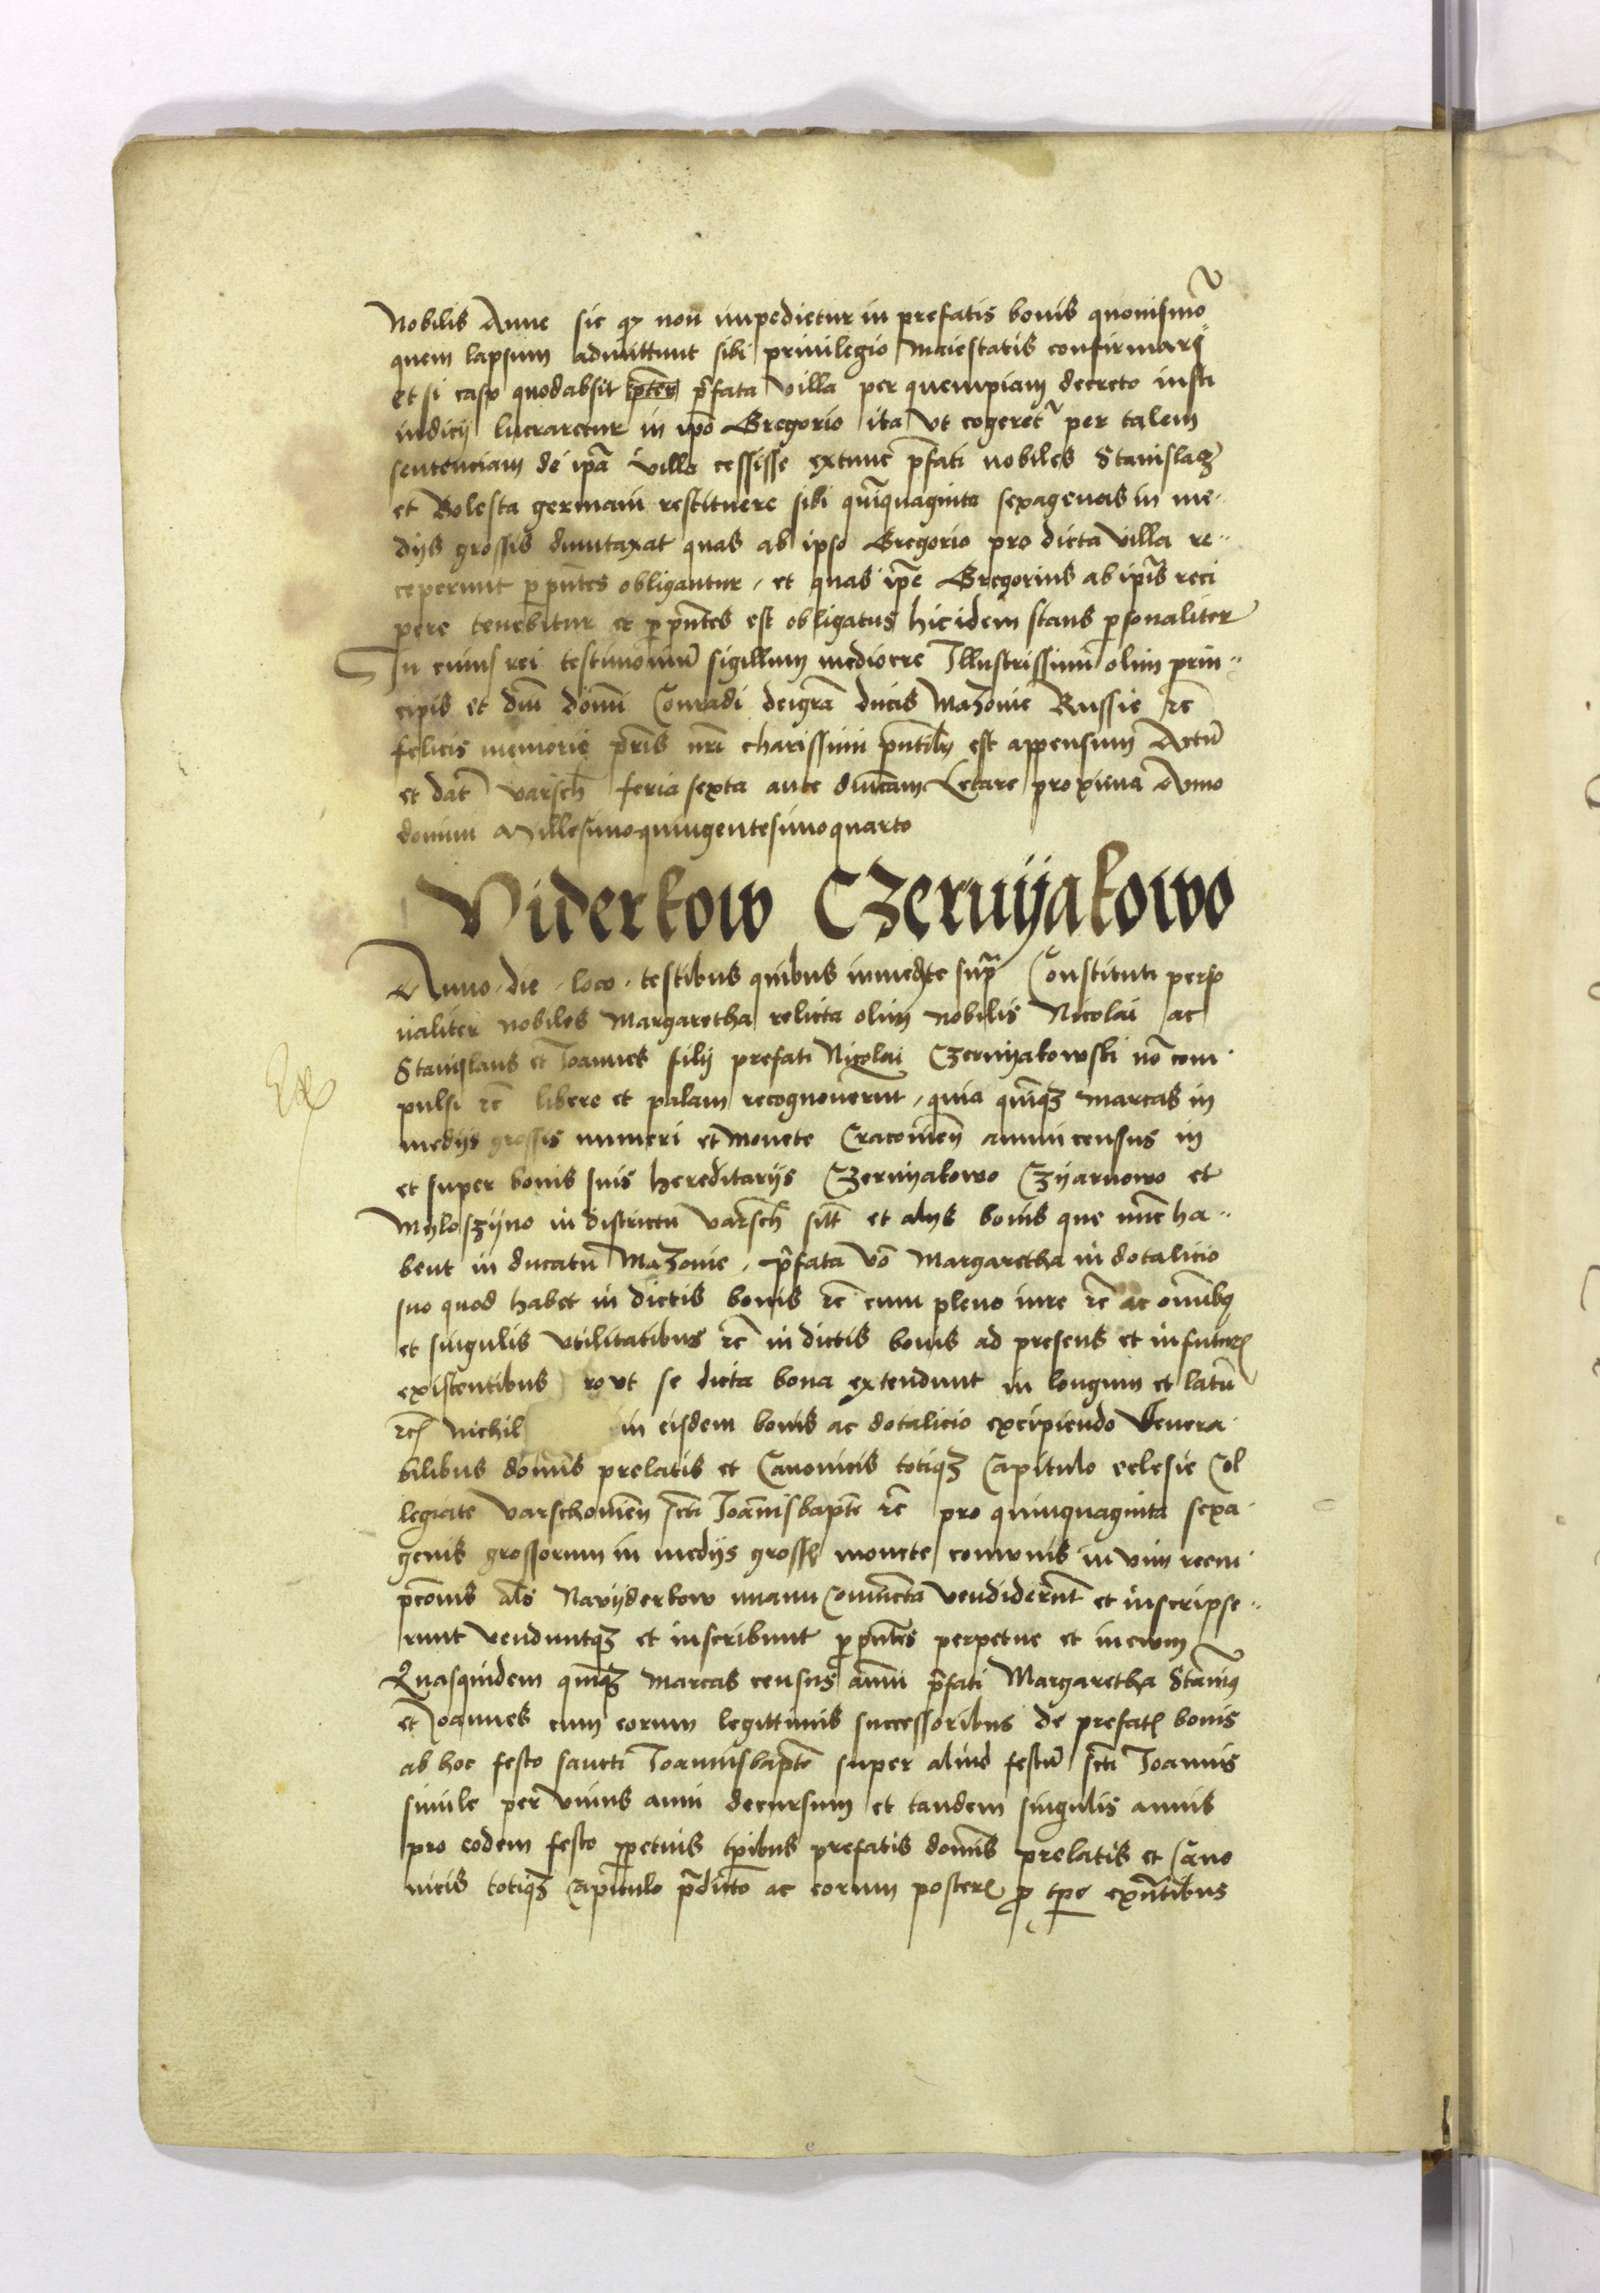 Nobilis Anne sic q non impedietur in prefatis bonis quouismo
quem lapsum admittunt sibi priuilegio Maiestatis confirmari
et si casu quodabsit prefata villa per quempiam decreto iusti
iudicij lucraretur in ipo Gregorio ita vt cogeret per talem
sentenciam de ipa villa cessisse extunc pfati nobiles Stanisla
et Bolesta germani restituere sibi quiquaginta sexagenas in me-
dijs grossis dumtaxat quas ab ipso Gregorio pro dicta villa re-
ceperunt p pntes obligantur, et quas ipe Gregorius ab ipis reci
pere tenebitur et p pntes est obligatus hic idem stans psonaliter
In cuius rei testimoniu sigillum mediocre Illustrissimi olim prin-
cipis et dni domi Conradi deigra ducis Mazouie Russie rc
felicis memorie pris nri charissimi pntib est appensum Actu
et dat varsch feria sexta ante dnicam Letare proxima Anno
domini Millesimoquingentesimoquarto
Viderkow Czernijakowo
Anno. die. loco. testibus quibus immediate supra Constituti perso
naliter nobiles Margaretha relicta olim nobilis Nicolai ac
Stanislaus et Joannes filij prefati Nicolai Czernijakowski no com-
pulsi rc libere et palam recognouerunt, quia quiqz marcas in
medijs grossis numeri et Monete Cracouien annui census in
et super bonis suis hereditarijs Czernijakowo Czijarnowo et
Myloszijno in districtu varsch sitt et alijs bonis que nuc ha-
bent in ducatu Mazouie, pfata vo Margaretha in dotalicio
suo quod habet in dictis bonis rc cum pleno iure rc ac omibq
et singulis vtilitatibus rc in dictis bonis ad presens et infuturu
existentibus rout se dicta bona extendunt in longum et latu
rc nichil in eisdem bonis ac dotalicio excipiendo Venera-
bilibus domis prelatis et Canonicis totiqz Capitulo eclesie Col
legiate varschouien scti Joanisbapte rc pro quinquaginta sexa-
genis grossorum in medijs gross monete comunis in vim reem-
pcois als Navijderkow manu coniuncta vendideru't et inscripse-
runt venduntqz et inscribunt p pntes perpetue et in euum
Quasquidem quiqz marcas census annui pfati Margaretha Stanis
et Joannes cum eorum legittimis successoribus de prefatis bonis
ab hoc festo sancti Joannisbapte super aliud festu scti Joannis
simile per vnius anni decursum et tandem singulis annis
pro eodem festo ppetuis tpibus prefatis domis prelatis et Cano
nicis totiqz Capitulo pdicto ac eorum posteris p tpe exntibus